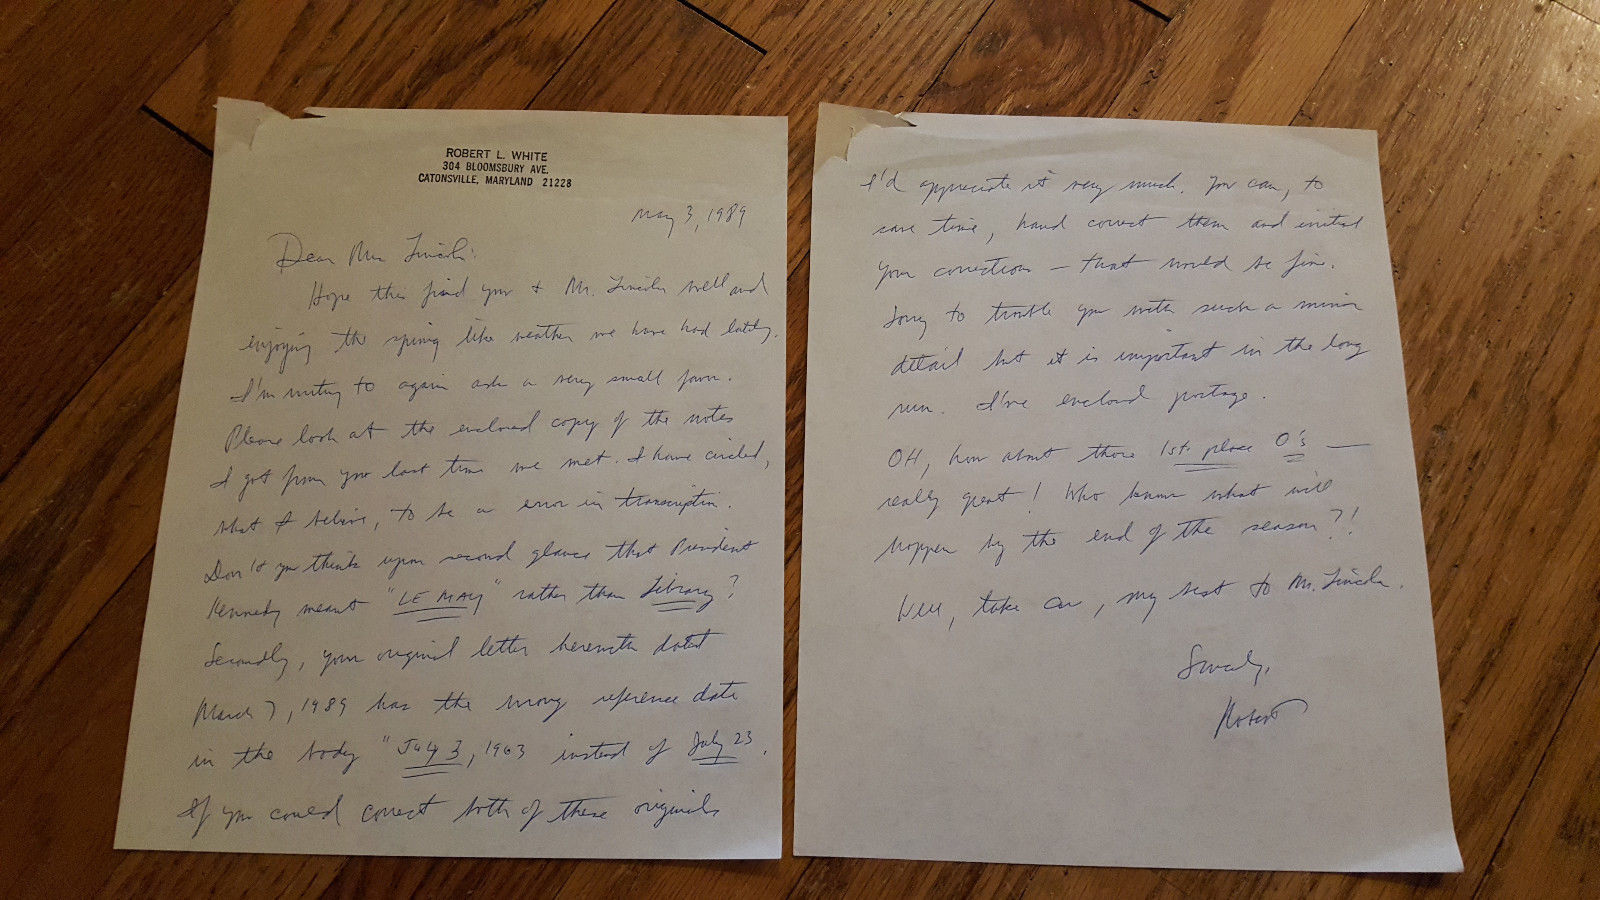 ROBERT L. WHITE
304 BLOOMSBURY AVE.
CATONSVILLE, MARYLAND 21228
May 3, 1989
Dear Mrs. Lincoln:
Hope this find you & Mr. Lincoln well and
enjoying the spring like weather we have had lately.
I'm writing to again ask a very small favor.
Please look at the enclosed copy of the notes
I got from you last time we met. I have circled,
what I believe, to be a error in transcription.
Don't you think upon second glance that President
Kennedy meant "LE MAY" rather than Library?
Secondly, your original letter herewith dated
March 7, 1989 has the wrong reference date
in the body "July 3, 1963 instead of July 23.
If you could correct both of these originals
I'd appreciate it very much. You can, to
save time, hand correct them and initial
your corrections — that would be fine.
Sorry to trouble you with such a minor
detail but it is important in the long
run. I've enclosed postage.
OH, how about those 1st place O's —
really great! Who knows what will
happen by the end of the season?!
Well, take care, my best to Mr. Lincoln.
Sincerely,
Robert